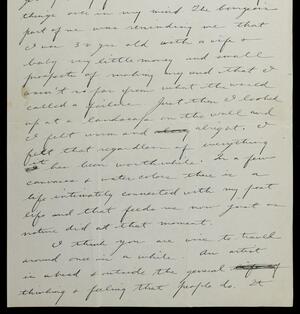 things over in my mind The bourgeois
part of me was reminding me that
I was 32 yrs old with a wife &
baby very little money and small
prospects of making any and that I
wasn't so far from what the world
called a failure. Just then I looked
up at a landscape on the wall and
I felt warm and alright. I
felt that regardless of everything
it has been worthwhile. In a few
canvases & water colors there is a
life intimately connected with my past
life and that feeds me now just as
nature did at that moment.
I think you are wise to travel
around once in a while. An artist
is ahead & outside the general
thinking & feeling that people do. It